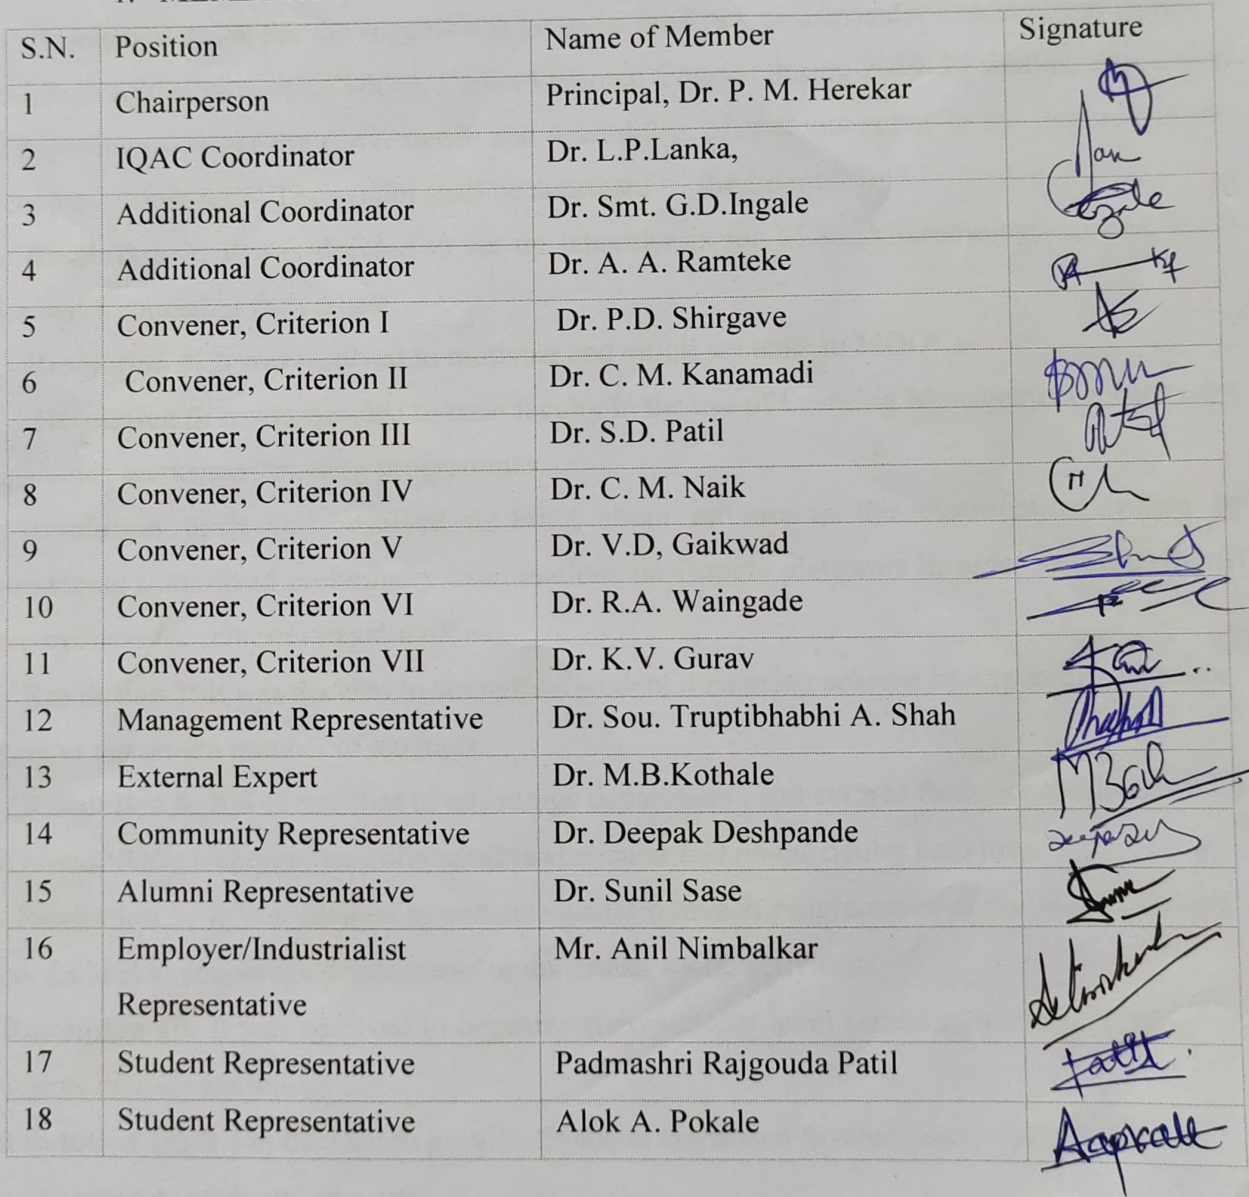 S.N. Position Name of Member Signature
1 Chairperson Principal, Dr. P. M. Herekar
2 IQAC Coordinator Dr. L.P.Lanka,
3 Additional Coordinator Dr. Smt. G.D.Ingale
4 Additional Coordinator Dr. A. A. Ramteke
5 Convener, Criterion I Dr. P.D. Shirgave
6 Convener, Criterion II Dr. C. M. Kanamadi
7 Convener, Criterion III Dr. S.D. Patil
8 Convener, Criterion IV Dr. C. M. Naik
9 Convener, Criterion V Dr. V.D, Gaikwad
10 Convener, Criterion VI Dr. R.A. Waingade
11 Convener, Criterion VII Dr. K.V. Gurav
12 Management Representative Dr. Sou. Truptibhabhi A. Shah
13 External Expert Dr. M.B.Kothale
14 Community Representative Dr. Deepak Deshpande
15 Alumni Representative Dr. Sunil Sase
16 Employer/Industrialist Mr. Anil Nimbalkar
Representative
17 Student Representative Padmashri Rajgouda Patil
18 Student Representative Alok A. Pokale